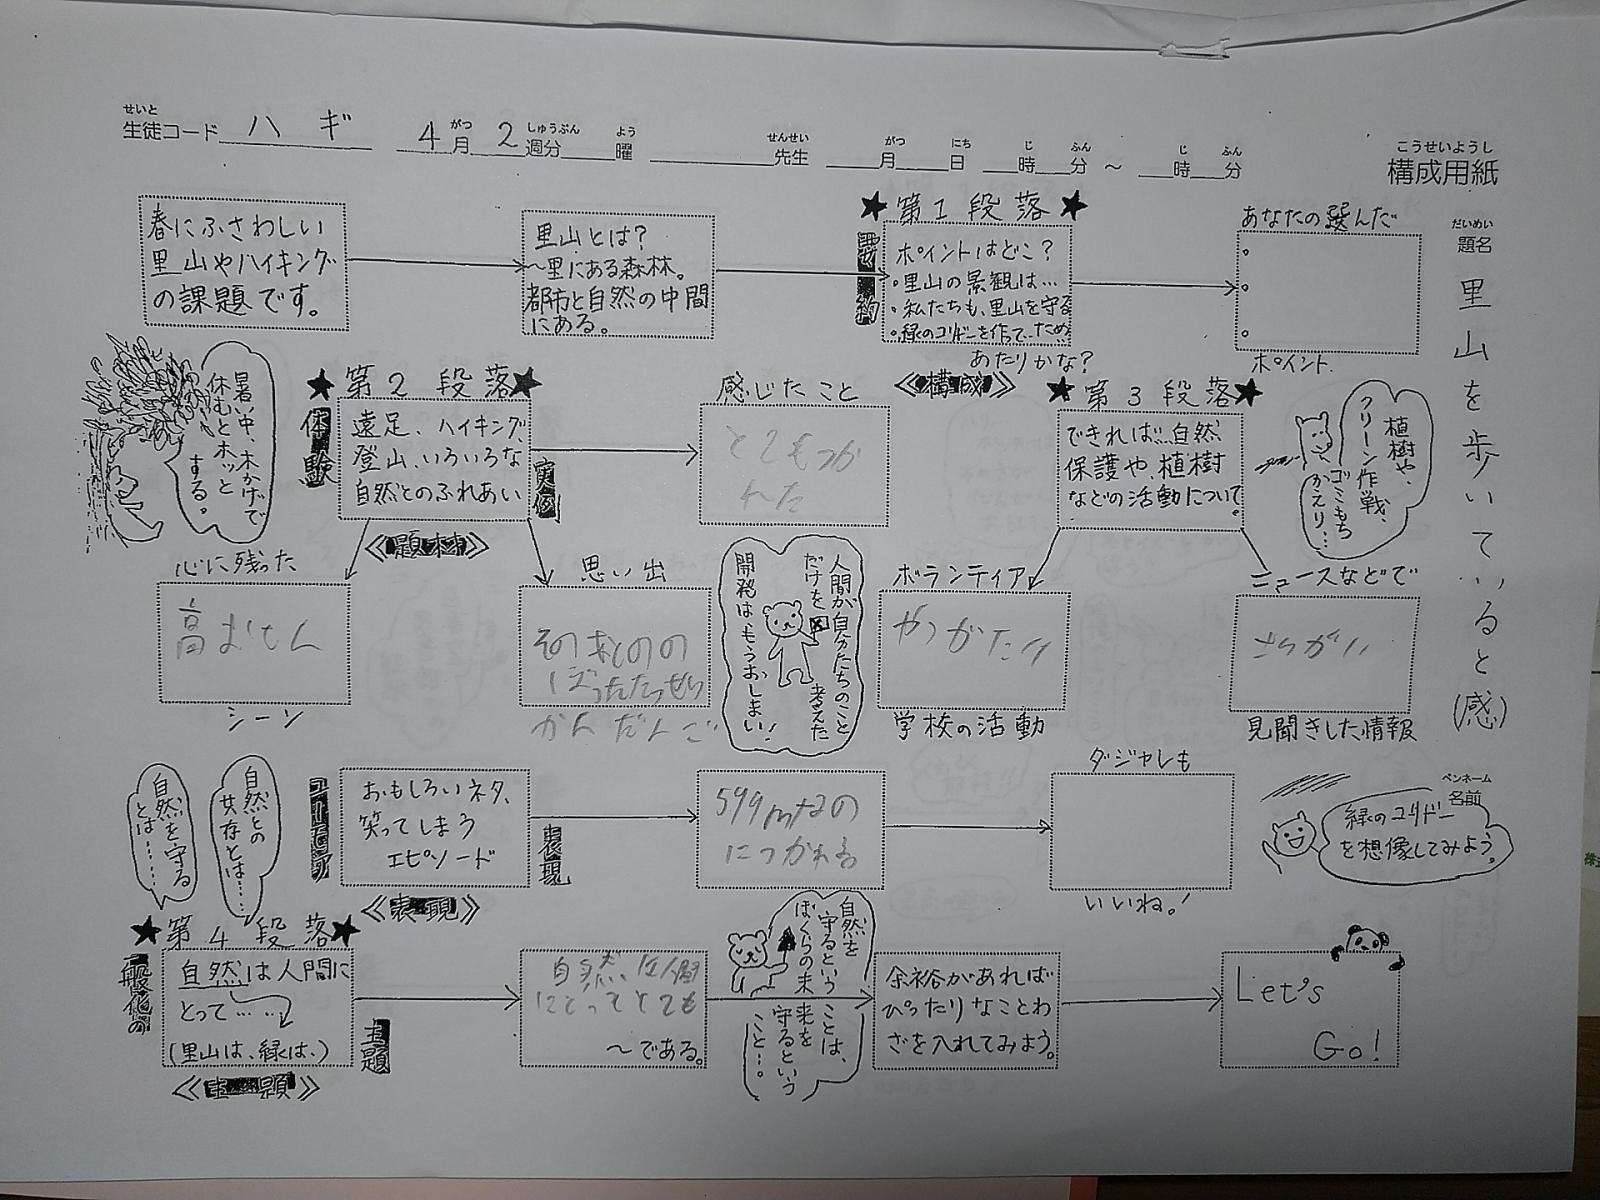 せいと
生徒コード ハギ 4月 2週分 曜 先生 月 日 時 分 ~ 時 分
がつ しゅうぶん よう せんせい がつ にち じ ふん じ ふん
こうせいようし
構成用紙
だいめい
題名
里山を歩いていると(感)
春にふさわしい
里山やハイキング
の課題です。
里山とは?
~里にある森林。
都市と自然の中間
にある。
★第1段落★
要約
ポイントはどこ?
・里山の景観は…
・私たちも、里山を守る
・緑のコリドーを作て…ため
あたりかな?
《構成》
あなたの選んだ
ポイント.
暑い中、木かげで
休むとホッと
する。
★第2段落★
体験
遠足、ハイキング、
登山、いろいろな
自然とのふれあい
実例
《題材》
感じたこと
とてもつか
れた
心に残った
高おさん
シーン
思い出
そのあとのの
ぼったたっせい
かんだんご
★第3段落★
できれば…自然
保護や、植樹
などの活動について。
植樹や、
クリーン作戦、
ゴミもち
かえり…
人間が自分たちのこと
だけを考えた
開発は、もうおしまい!
ボランティア
学校の活動
ニュースなどで
見聞きした情報
自然との
共存とは……
自然を守る
とは……
ユーモア
おもしろいネタ、
笑ってしまう
エピソード
表現
《表現》
599mなの
につかれる
ダジャレも
いいね。!
ペンネーム
名前
緑のコリドー
を想像してみよう。
★第4段落★
一般化の
自然は人間に
とって……
(里山は、緑は、)
主題
《主題》
自然は人間
にとってとても
~である。
自然を
守るということは、
ぼくらの未来を
守るという
こと…。
余裕があれば
ぴったりなことわ
ざを入れてみよう。
Let's
Go!